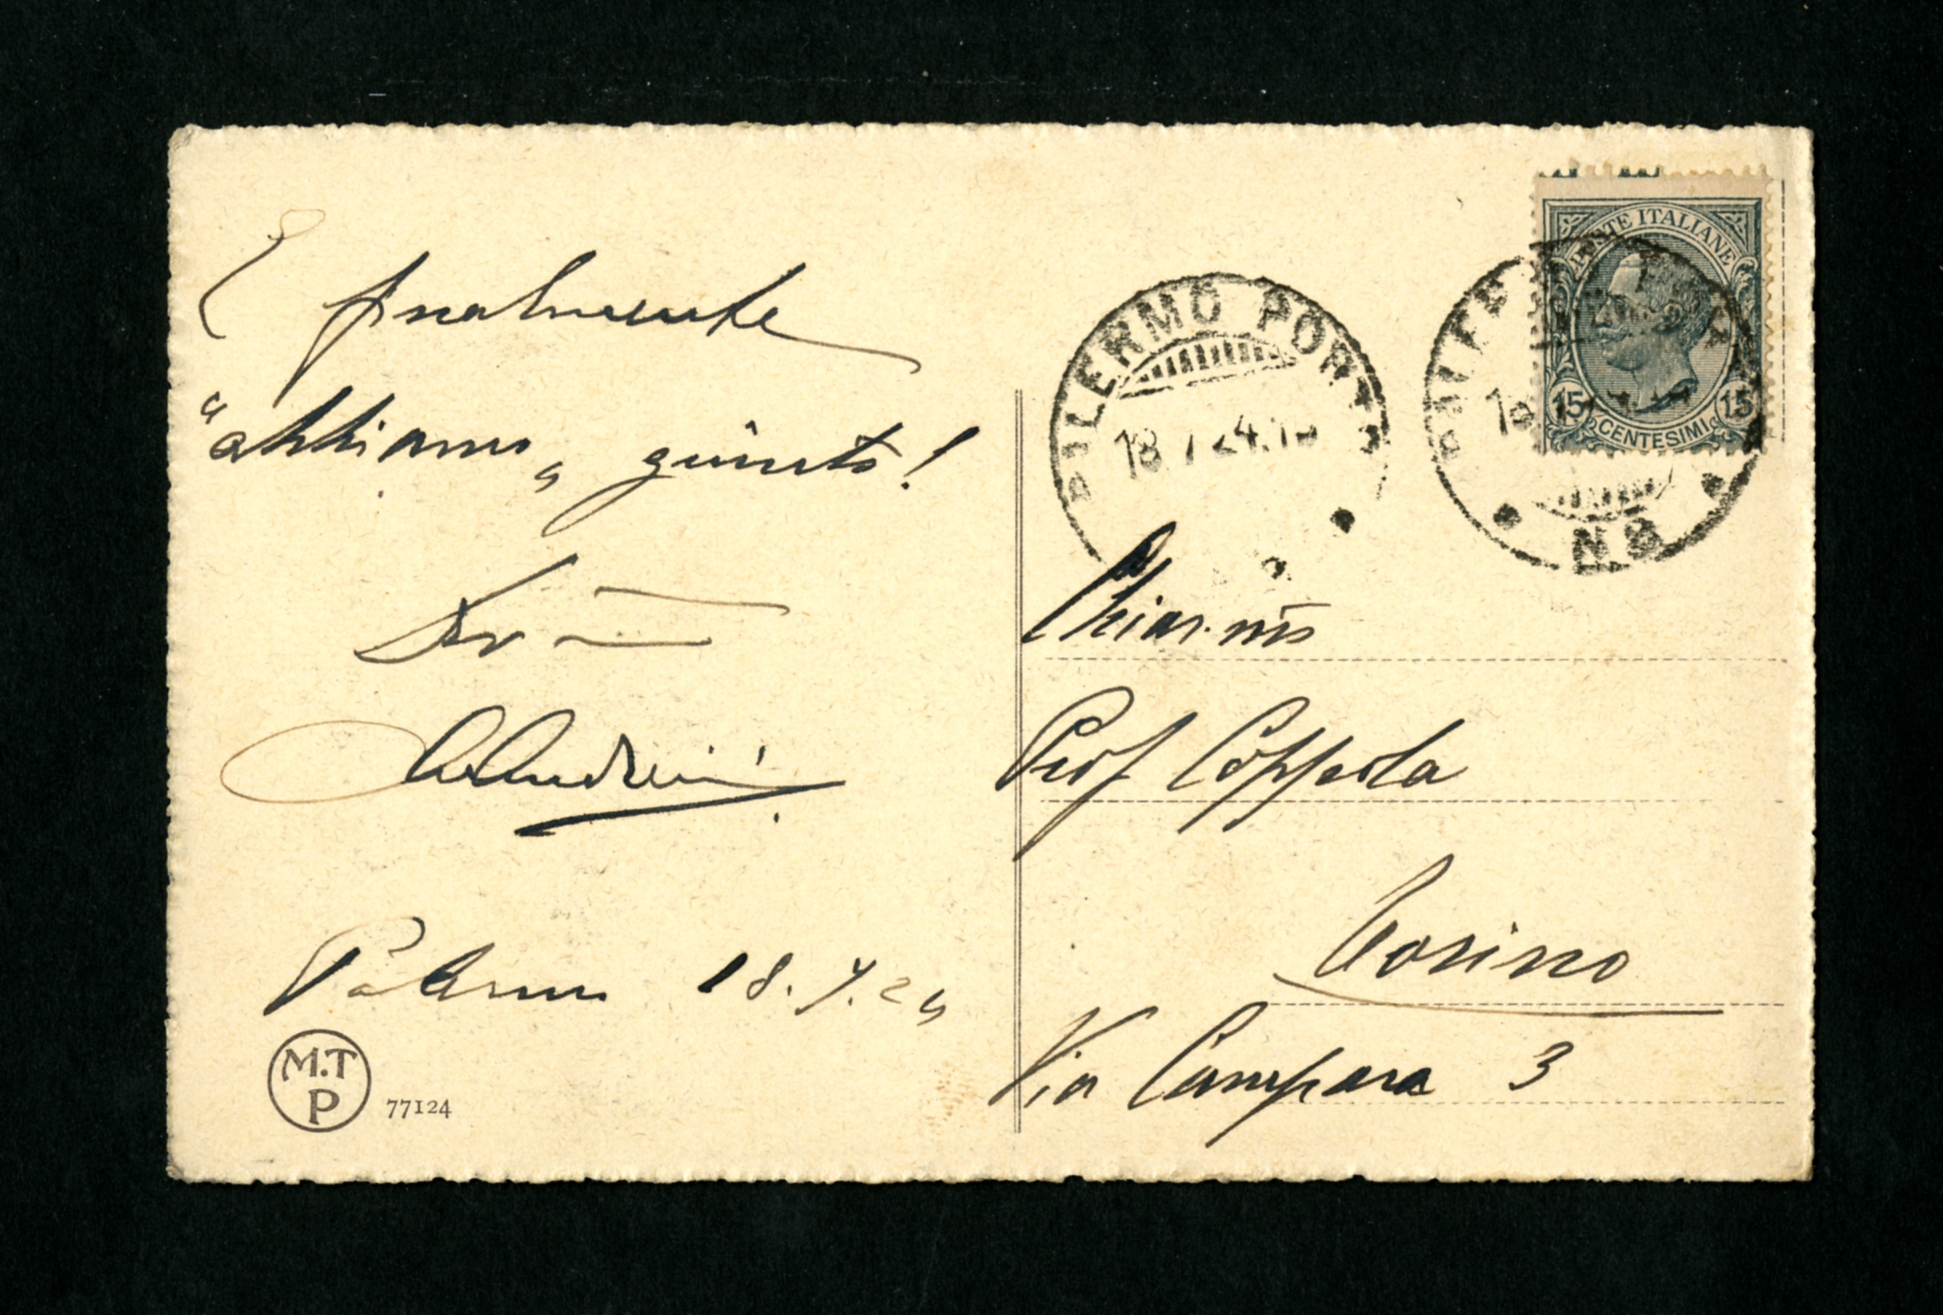 E finalmente
"abbiamo" giurato!
Palermo 18.7.24
M.T
P
77124
PALERMO PORTO
18.7.24.
POSTE ITALIANE
15 CENTESIMI 15
N8
Chiar.mo
Prof Coppola
Torino
Via Campana 3